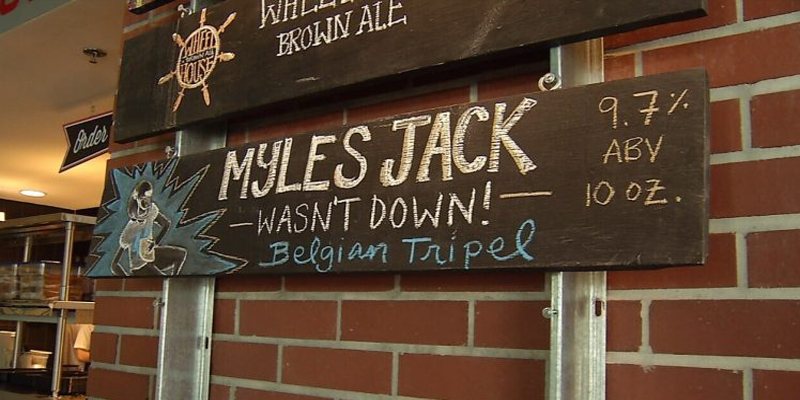 WHEEL
BROWN ALE
WHEEL
BROWN ALE
HOUSE
Order
MYLES JACK
—WASN'T DOWN!—
Belgian Tripel
9.7%
ABV
10 OZ.